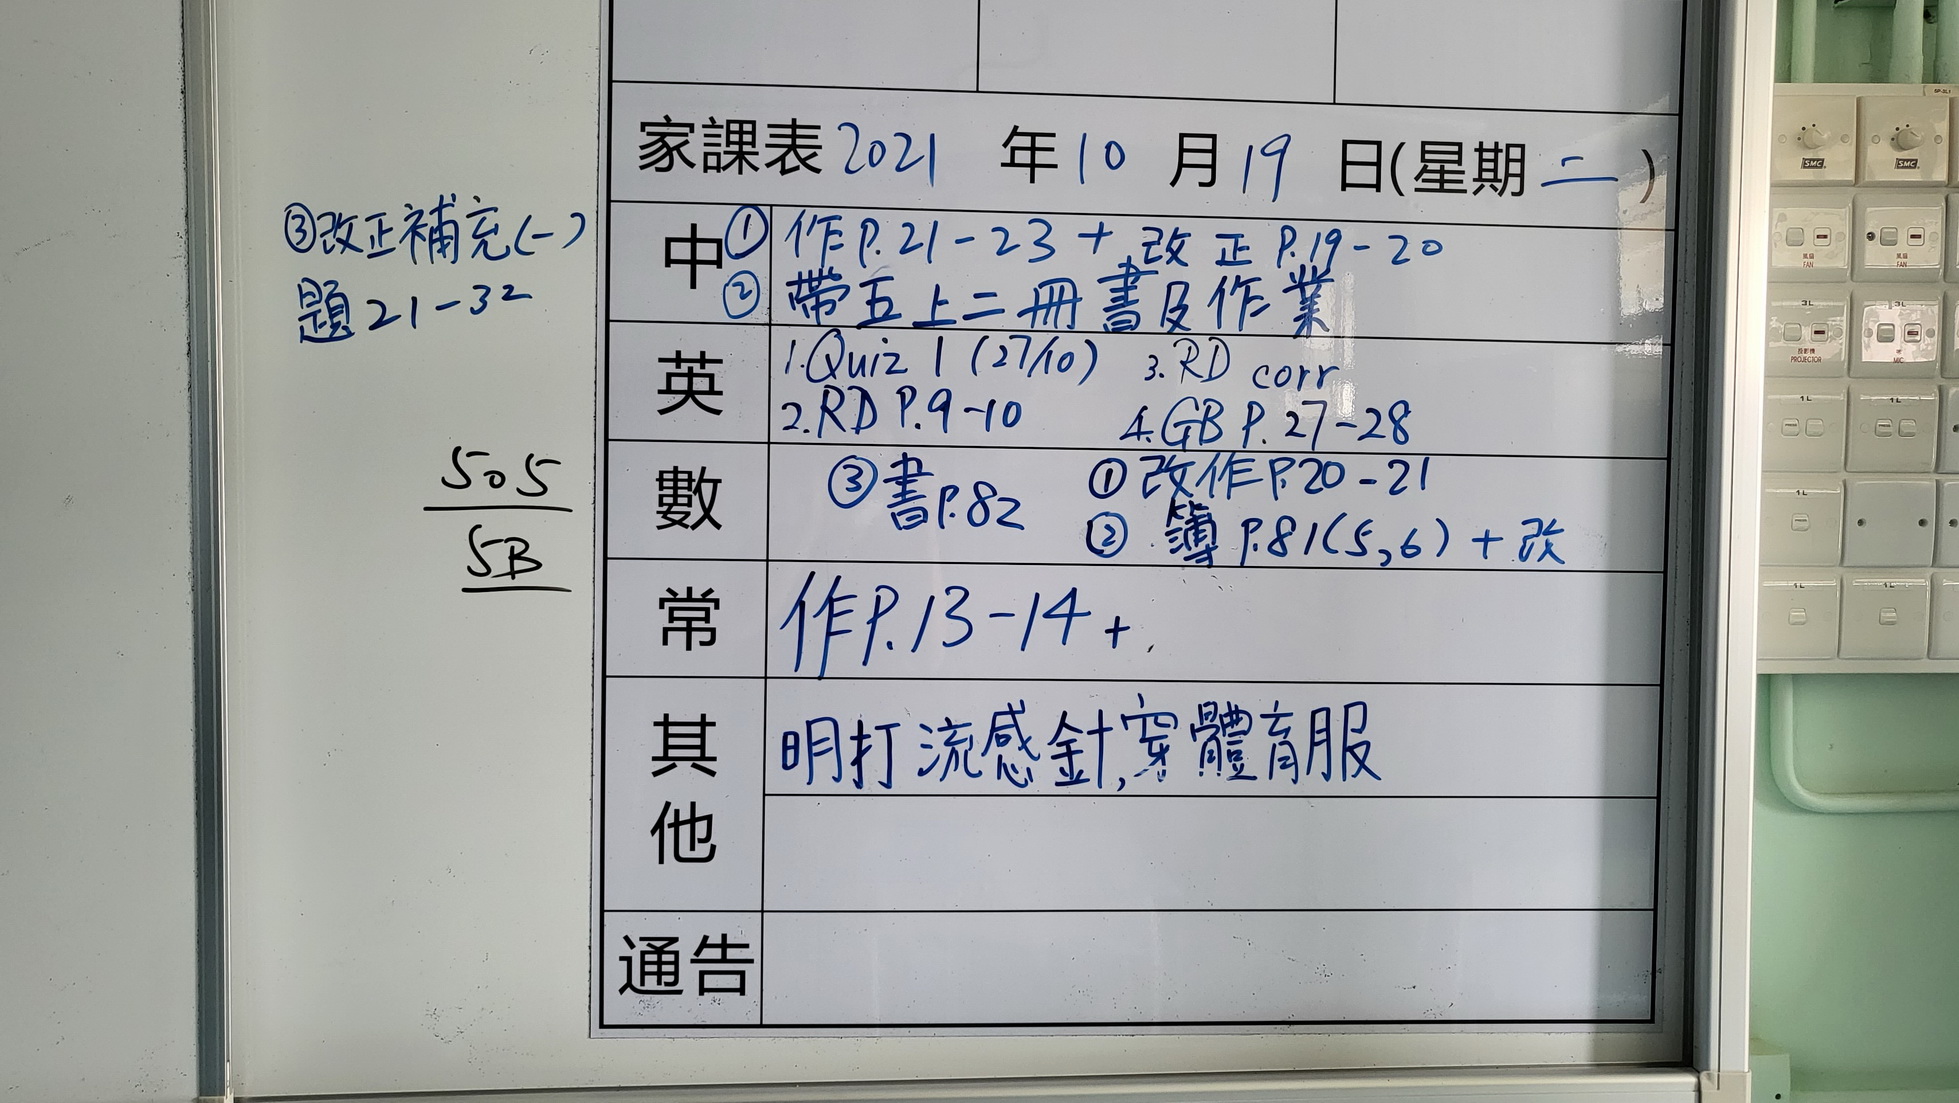 家課表 2021 年 10 月 19 日(星期二)
③改正補充(一)
題21-32
505
5B
中 ① 作P.21-23 + 改正P.19-20
② 帶五上二冊書及作業
英 1.Quiz 1 (27/10) 3.RD corr
2.RD P.9-10 4.GB P.27-28
數 ③書P.82 ①改作P.20-21
② 簿P.81(5,6)+改
常 作P.13-14+
其他 明打流感針,穿體育服
通告
SMC
SMC
風扇
FAN
風扇
FAN
3L
投影機
PROJECTOR
3L
MIC
1L
1L
1L
1L
1L